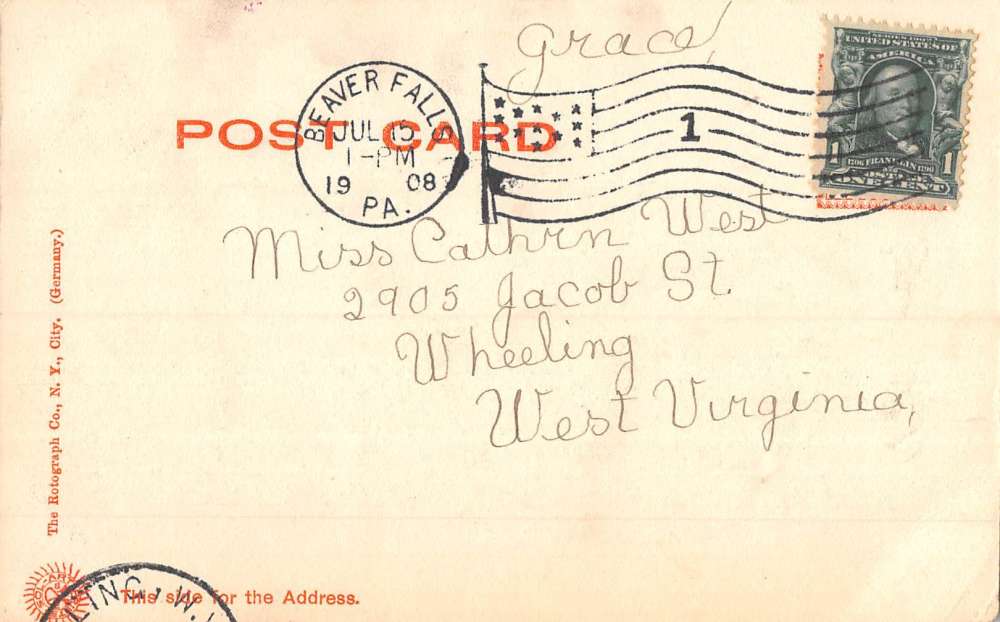 Grace,
POST CARD
BEAVER FALLS
JUL 15
1-PM
19 08
PA.
1
SERIES 1902
UNITED STATES OF
AMERICA
1 FRANKLIN 1
POSTAGE
ONE CENT
Miss Cathrn West
2905 Jacob St
Wheeling
West Virginia,
The Rotograph Co., N. Y., City. (Germany.)
This side for the Address.
LING, W.